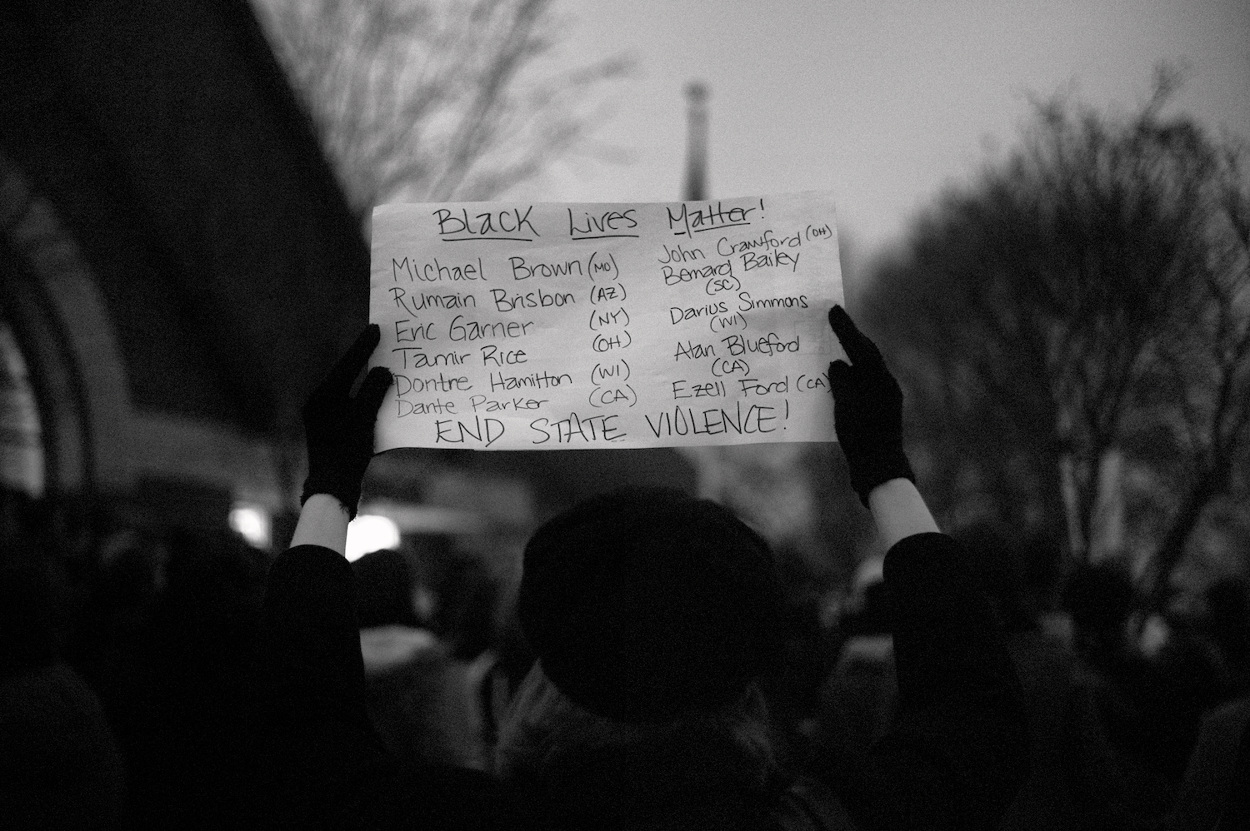 Black Lives Matter!
Michael Brown (MO)
Rumain Brisbon (AZ)
Eric Garner (NY)
Tamir Rice (OH)
Dontre Hamilton (WI)
Dante Parker (CA)
John Crawford (OH)
Bernard Bailey
(SC)
Darius Simmons
(WI)
Alan Blueford
(CA)
Ezell Ford (CA)
END STATE VIOLENCE!